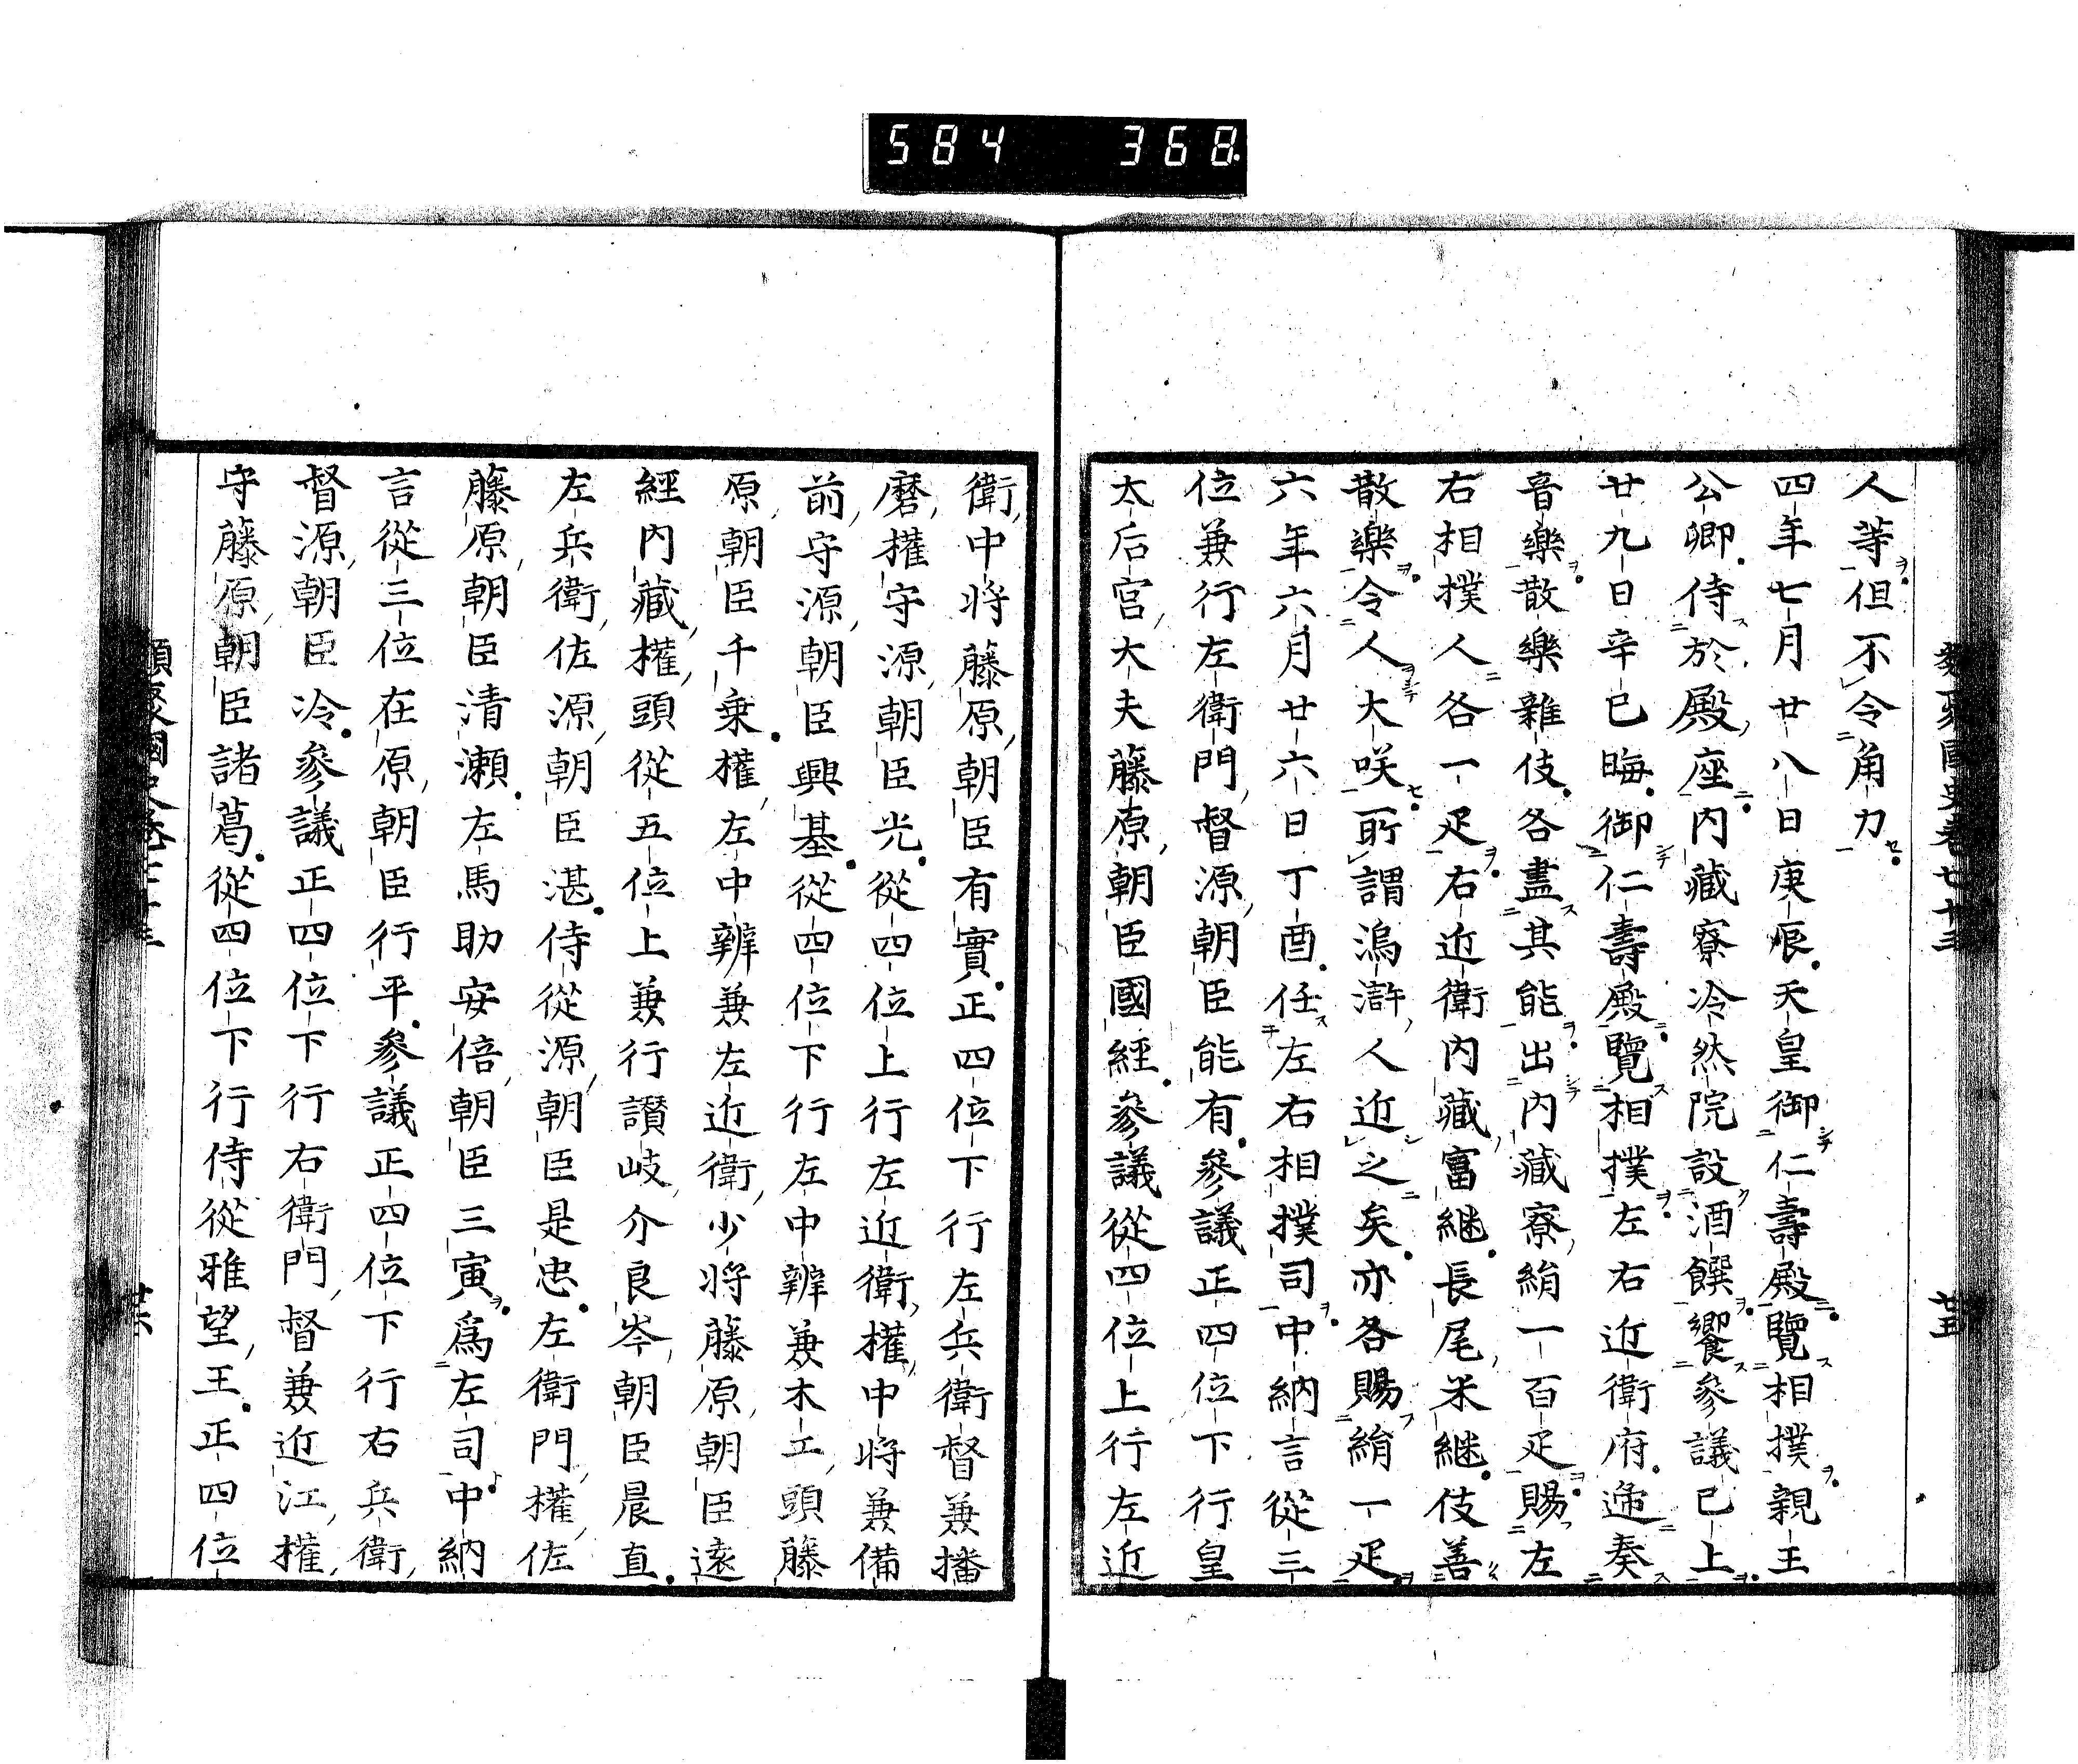 584 368
類聚國史卷七十三
廿五
人等但不令角力
四年七月廿八日庚辰天皇御仁壽殿覽相撲親王
公卿侍於殿座內藏寮冷然院設酒饌饗參議已上
廿九日辛巳晦御仁壽殿覽相撲左右近衛府遞奏
音樂散樂雜伎各盡其能出內藏寮絹一百疋賜左
右相撲人各一疋右近衛內藏富継長尾米継伎善
散樂令人大咲所謂鴻滸人近之矣亦各賜絹一疋
六年六月廿六日丁酉任左右相撲司中納言從三
位兼行左衛門督源朝臣能有參議正四位下行皇
太后宮大夫藤原朝臣國經參議從四位上行左近
衛中將藤原朝臣有實正四位下行左兵衛督兼播
磨權守源朝臣光從四位上行左近衛權中將兼備
前守源朝臣興基從四位下行左中辨兼木工頭藤
原朝臣千乗權左中辨兼左近衛少將藤原朝臣遠
經內藏權頭從五位上兼行讃岐介良岑朝臣晨直
左兵衛佐源朝臣湛侍從源朝臣是忠左衛門權佐
藤原朝臣清瀬左馬助安倍朝臣三寅爲左司中納
言從三位在原朝臣行平參議正四位下行右兵衛
督源朝臣冷參議正四位下行右衛門督兼近江權
守藤原朝臣諸葛從四位下行侍從雅望王正四位
類聚國史卷七十三
廿六